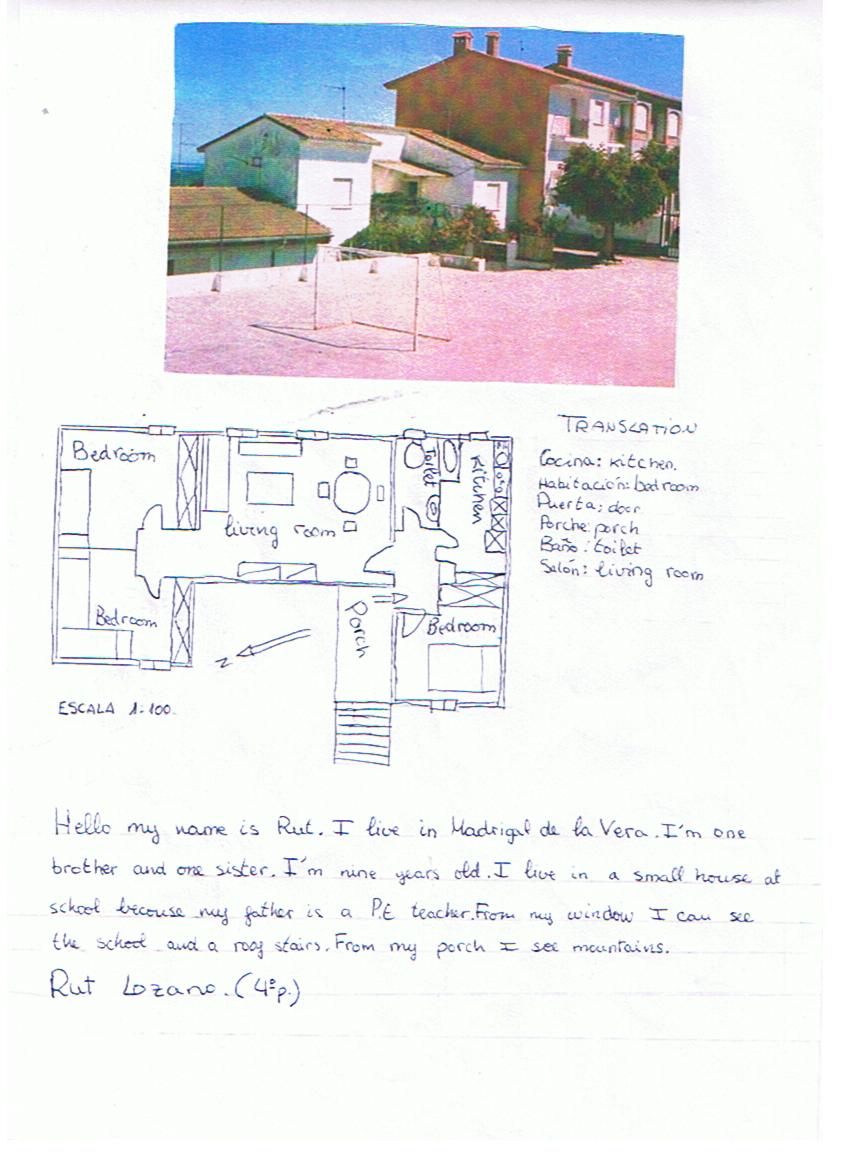 TRANSLATION
Cocina: kitchen.
Habitación: bedroom
Puerta: door
Porche: porch
Baño: toilet
Salón: living room
Bedroom
living room
Toilet
Kitchen
Bedroom
Porch
Bedroom
N
ESCALA 1:100.
Hello my name is Rut. I live in Madrigal de la Vera. I'm one
brother and one sister. I'm nine years old. I live in a small house at
school becouse my father is a P.E teacher. From my window I can see
the school and a stairs. From my porch I see mountains.
Rut Lozano. (4ºp.)